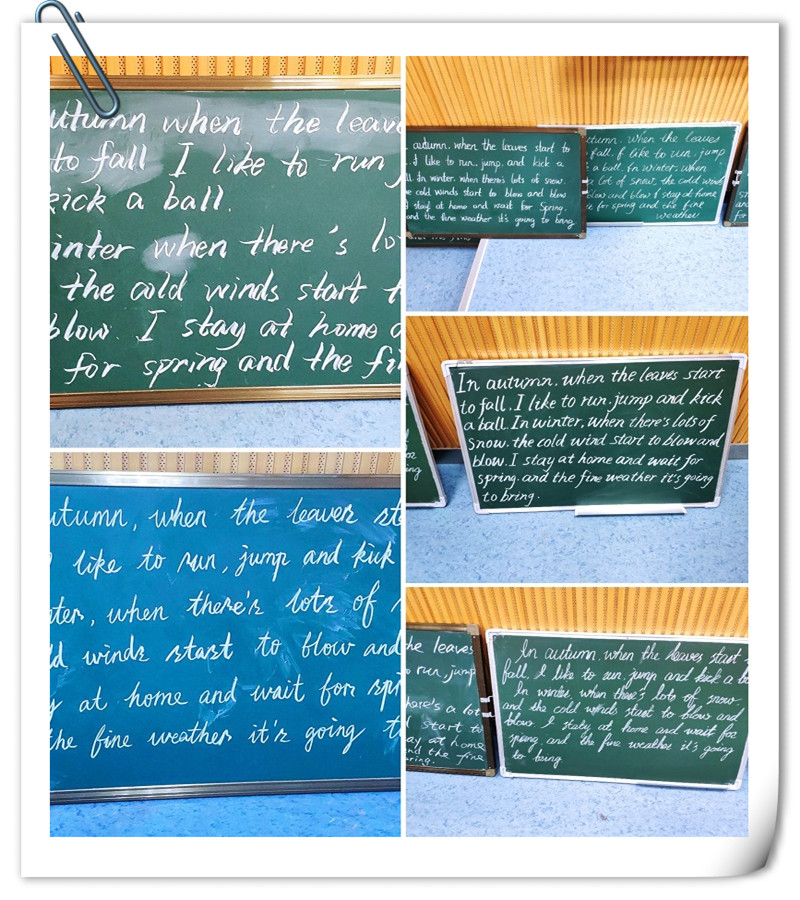 utumn when the leave
to fall I like to run
kick a ball.
inter when there's lo
the cold winds start t
blow. I stay at home a
for spring and the fi
autumn. when the leaves start to
I like to run. jump. and kick a
ll In winter. when there's lots of snow.
e cold winds start to blow and blow
I stay at home and wait for Spring.
and the fine weather it's going to bring
utumn. when the leaves
fall. I like to run. jump
a ball. In winter. when
a lot of snow, the cold winds
blow and blow I stay at home
for spring and the fine
weather
In autumn. when the leaves start
to fall. I like to run. jump and kick
a ball. In winter, when there's lots of
snow. the cold wind start to blow and
blow. I stay at home and wait for
spring. and the fine weather it's going
to bring.
utumn, when the leaves st
like to run, jump and kick
nter, when there's lots of
ld winds start to blow and
y at home and wait for spri
the fine weather it's going t
he leaves
o run, jump
here's a lot
start to
ay at home
nd the fine
ring.
In autumn. when the leaves start
fall. I like to run. jump and kick a b
In winter, when there's lots of snow.
and the cold winds start to blow and
blow. I staty at home and wait for
spring, and the fine weather it's going
to bring